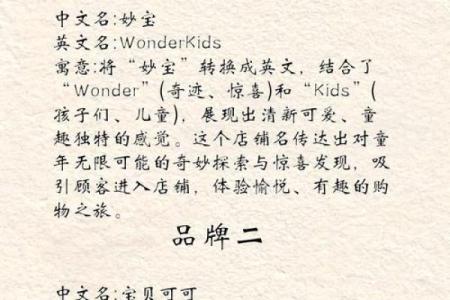 中文名:妙宝
英文名:WonderKids
寓意:将“妙宝”转换成英文，结合了
“Wonder”(奇迹、惊喜)和“Kids”(
孩子们、儿童)，展现出清新可爱、童
趣独特的感觉。这个店铺名传达出对童
年无限可能的奇妙探索与惊喜发现，吸
引顾客进入店铺，体验愉悦、有趣的购
物之旅。
品牌二
中文名:宝贝可可